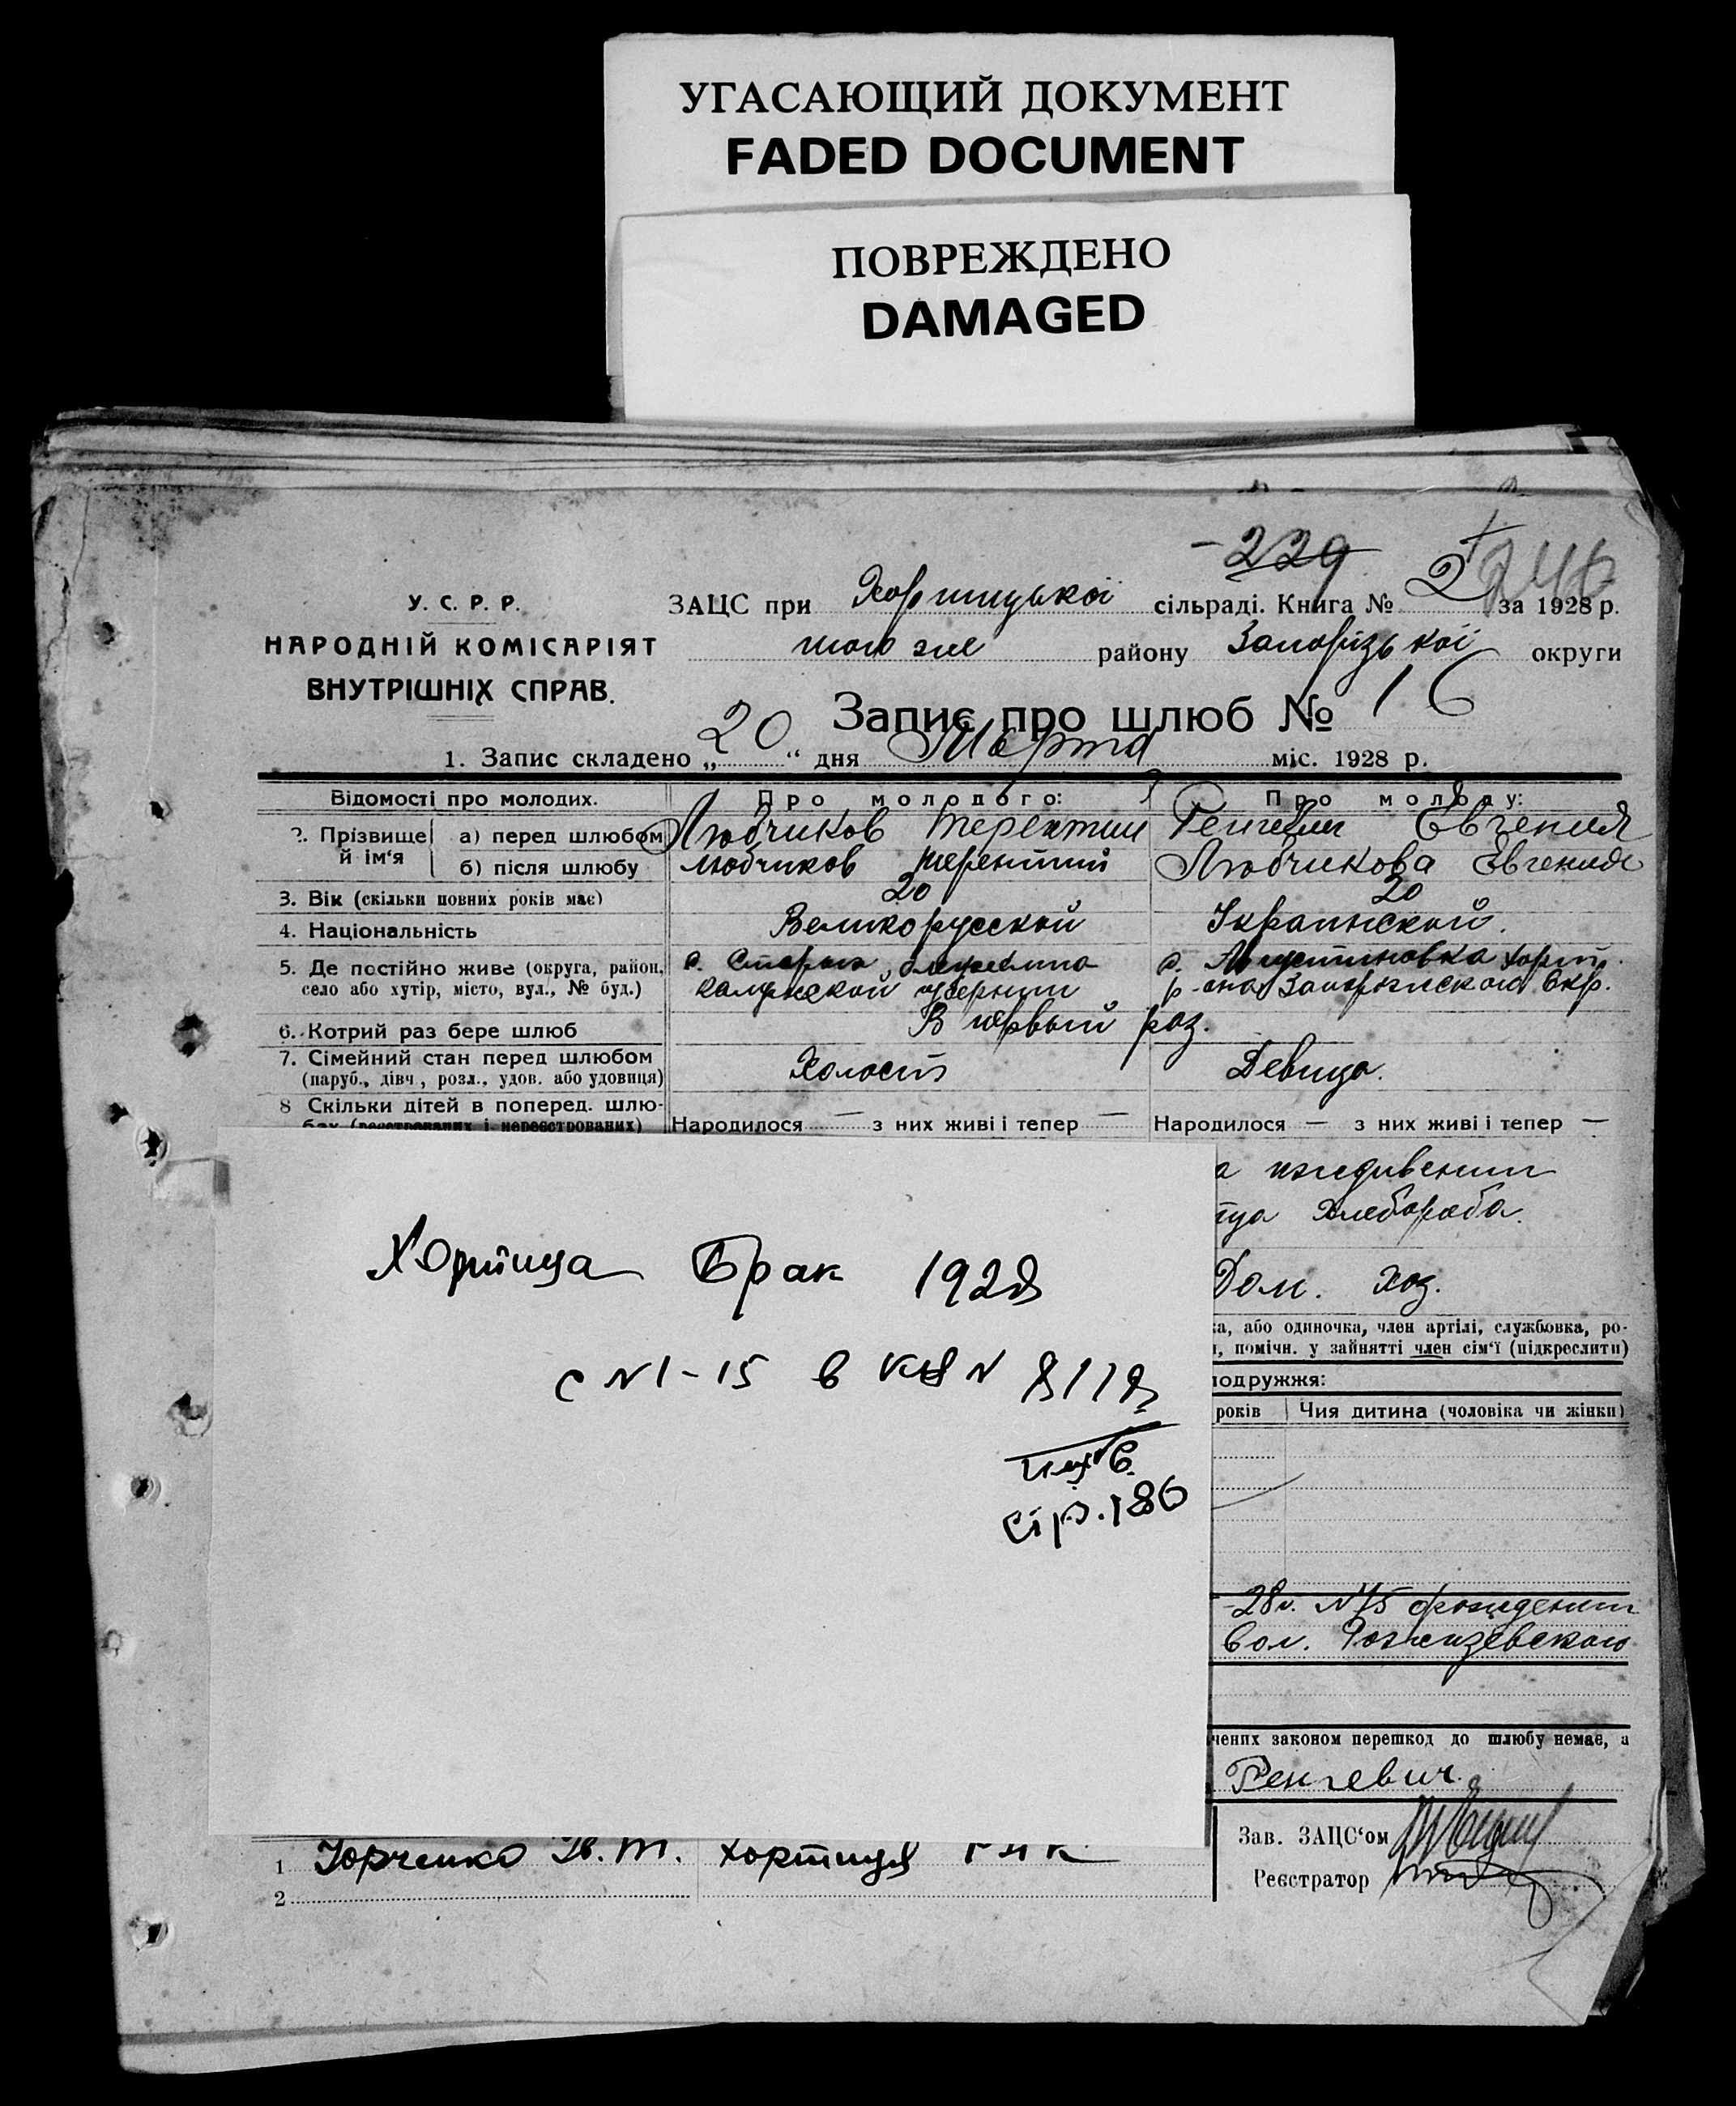 УГАСАЮЩИЙ ДОКУМЕНТ
FADED DOCUMENT
ПОВРЕЖДЕНО
DAMAGED
229
У. С. Р. Р.
НАРОДНІЙ КОМІСАРІЯТ
ВНУТРІШНІХ СПРАВ.
ЗАЦС при Хортицької сільраді. Книга № 2 за 1928 р.
того же району Запорізької округи
Запис про шлюб № 16
1. Запис складено „20“ дня Марта міс. 1928 р.
Відомості про молодих. Про молодого: Про молоду:
2. Прізвище й ім‘я
а) перед шлюбом Любчиков Терентий Евгения
б) після шлюбу Любчиков Терентий Любчикова Евгения
3. Вік (скільки повних років має) 20 20
4. Національність Великорусской Украинской.
5. Де постійно живе (округа, район, село або хутір, місто, вул., № буд.)
с. Старая
Калужской губернии
с. Августиновка Хорт.
р-она Запорожского Окр.
6. Котрий раз бере шлюб В первый раз.
7. Сімейний стан перед шлюбом (паруб., дівч., розл., удов. або удовиця) Холост Девица.
8 Скільки дітей в поперед. шлюбах (реєстрованих і нереєстрованих) Народилося — з них живі і тепер — Народилося — з них живі і тепер —
а иждивении
тца Хлебороба.
Дом. хоз.
ка, або одиночка, член артілі, службовка, ро-
, помічн. у зайнятті член сім‘ї (підкреслити)
подружжя:
років Чия дитина (чоловіка чи жінки)
Хортица Брак 1928
с N1-15 в кн N 8118
стр. 186
-28г. N75 о рождении
вол.
чених законом перешкод до шлюбу немає, а
Ренгевич.
1 Юрченко Ів. Т. Хортиця
2
Зав. ЗАЦС‘ом
Реєстратор